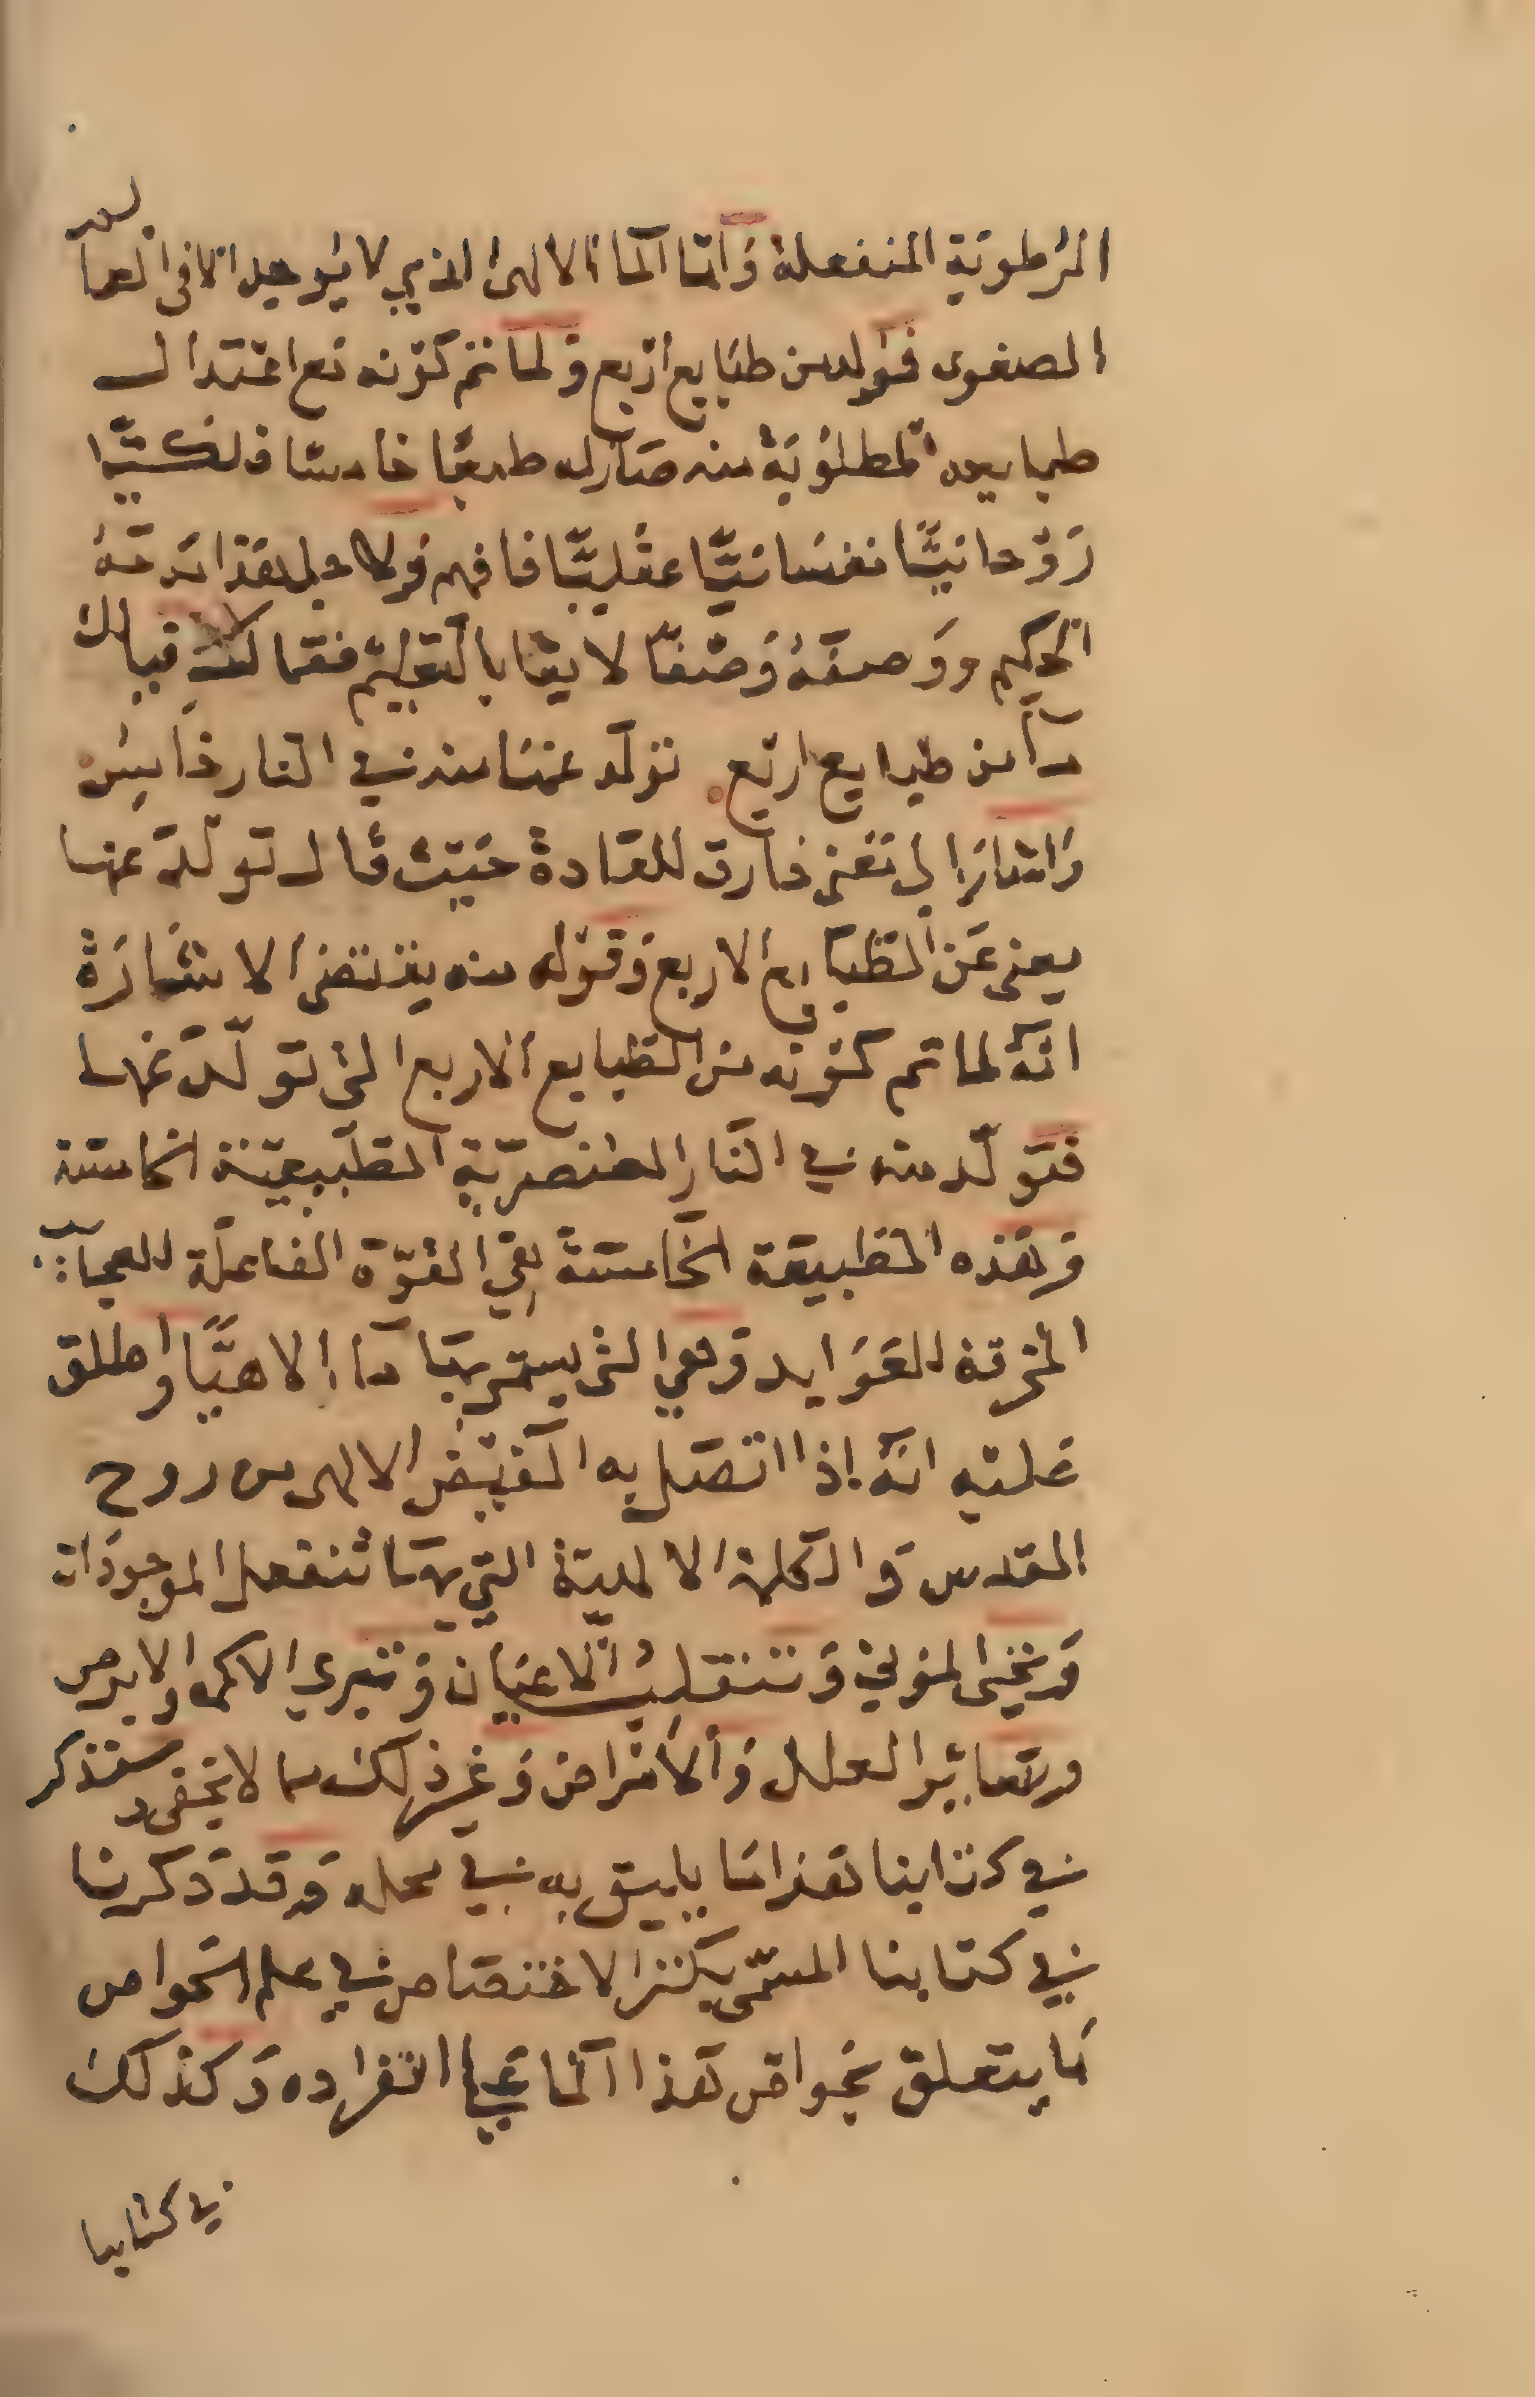 الرطوبة المنفعلة وامّا الما الالهى الذي لا يوجد الا فى العالم
الصغرى فهو له من طبايع اربع ولما تم كونه مع اعتدال
طبايعه المطلوبة منه صار له طبعًا خامسًا فلكيًّا
روحانيًّا نفسانيًّا عقليًّا فافهم ولاجل هذا مدحهُ
الحكيم ووصفهُ وصفًا لايقا بالتعليم فقال
ما من طبايع اربع تولّد عنها منه في النار خامس
واشار الى معنى خارق للعادة حيث قال تولّد عنها
يعنى عن الطبايع الاربع وقوله منه يقتضى الاشارة
انّه لما تم كونه من الطبايع الاربع التى تولّد عنها
فتولّد منه في النار العنصريّة الطبيعيّة الخامسة
وهذه الطبيعة الخامسة هي القوّة الفاعلة للعجايب
الخرقة للعوايد وهي التى يسمّى بها ما الاهيًّا واطلق
عليه انّه اذا اتصل به الفيض الالهى من روح
القدس والكلمة الالهيّة التي بها تنفعل الموجودات
وتحيى الموتى وتنقلب الاعيان وتبرى الاكمه والابرص
وساير العلل والامراض وغير ذلك مما لا يخفى وسنذكر
في كتابنا هذا ما يليق به في محله وقد ذكرنا
في كتابنا المسمّى بكنز الاختصاص في علم الخواص
ما يتعلق بخواص هذا الما على انفراده وكذلك
في كتابنا